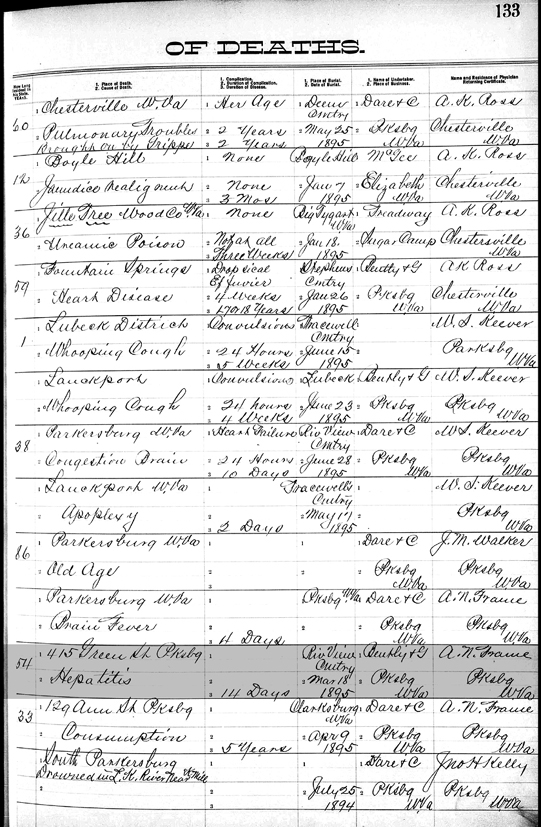 133
OF DEATHS.
How Long Resident in this State. YEARS.
1. Place of Death. 2. Cause of Death.
1. Complication. 2. Duration of Complication. 3. Duration of Disease.
1. Place of Burial. 2. Date of Burial.
1. Name of Undertaker. 2. Place of Business.
Name and Residence of Physician Returning Certificate.
60 1 Chesterville W.Va 1 Her Age 1 Cmtry 1 Dare & C A. K. Ross
2 Pulmonary Troubles 2 2 Years 2 May 25 2 Pksbg Chesterville
Brought on by Grippe 3 2 Years 1895 W.Va W.Va
12 1 Boyle Hill 1 None 1 Boyle Hill 1 McGee A. K. Ross
2 Jaundice Malignent 2 None 2 Jan 7 2 Elizabeth Chesterville
3 3 Mos 1895 W.Va W.Va
36 1 Tree Wood Co W.Va 1 None 1 Big Tygart W.Va 1 Treadway A. K. Ross
2 Uraemic Poison 2 Not at all 2 Jan 18. 2 Camp Chestersville
3 Three Weeks 1895 W.Va
59 1 Fountain Springs 1 Dropsical 1 Stephens Cmtry 1 Bently & G A K Ross
2 Heart Disease 2 4 Weeks 2 Jan 26 2 Pksbg Chesterville
3 17 or 18 Years 1895 W.Va W.Va
1 1 Lubeck District 1 Convulsions 1 Tracewell Cmtry 1 W. S. Keever
2 Whooping Cough 2 24 Hours 2 June 15 2 Parksbg
3 5 Weeks 1895 W.Va
1 Lauckport 1 Convulsions 1 Lubeck 1 Bently & G W. S. Keever
2 Whooping Cough 2 24 hours 2 June 23 2 Pksbg Pksbg
3 4 Weeks 1895 W.Va W.Va
38 1 Parkersburg W.Va 1 Heart Failure 1 Riv View Cmtry 1 Dare & C W. S. Keever
2 Congestion Brain 2 24 Hours 2 June 28 2 Pksbg Pksbg
3 10 Days 1895 W.Va W.Va
1 Lauckport W.Va 1 Tracewells Cmtry 1 W. S. Keever
2 Apoplexy 2 2 May 17 2 Pksbg
3 2 Days 1895 W.Va
86 1 Parkersburg W.Va 1 1 1 Dare & C J. M. Walker
2 Old Age 2 2 2 Pksbg Pksbg
3 W.Va W.Va
1 Parkersburg W.Va 1 1 Pksbg W.Va 1 Dare & C A. N. Frame
2 Brain Fever 2 2 2 Pksbg Pksbg
3 4 Days W.Va W.Va
54 1 415 Green St Pksbg 1 1 Riv View Cmtry 1 Bently & G A. N. Frame
2 Hepatitis 2 2 Mar 18 2 Pksbg Pksbg
3 14 Days 1895 W.Va W.Va
33 1 129 Ann St Pksbg 1 1 Clarksburg W.Va 1 Dare & C A. N. Frame
2 Consumption 2 2 Apr 9 2 Pksbg Pksbg
3 5 Years 1895 W.Va W.Va
1 South Parkersburg 1 1 1 Dare & C Jno H Kelly
Drowned in L. K. River Near W. Mill
2 2 2 July 25 2 Pksbg Pksbg
3 1894 W.Va W.Va